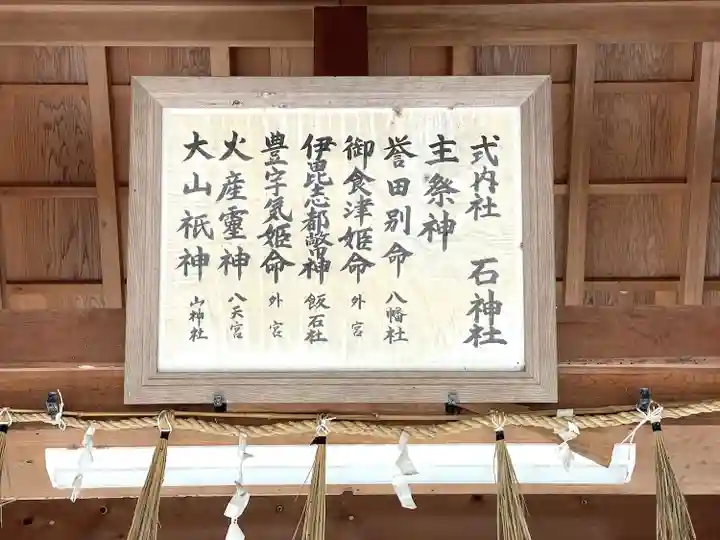 式内社 石神社
主祭神
誉田別命 八幡社
御食津姫命 外宮
伊毘志都幣神 飯石社
豊宇気姫命 外宮
火産霊神 八天宮
大山祇神 山神社